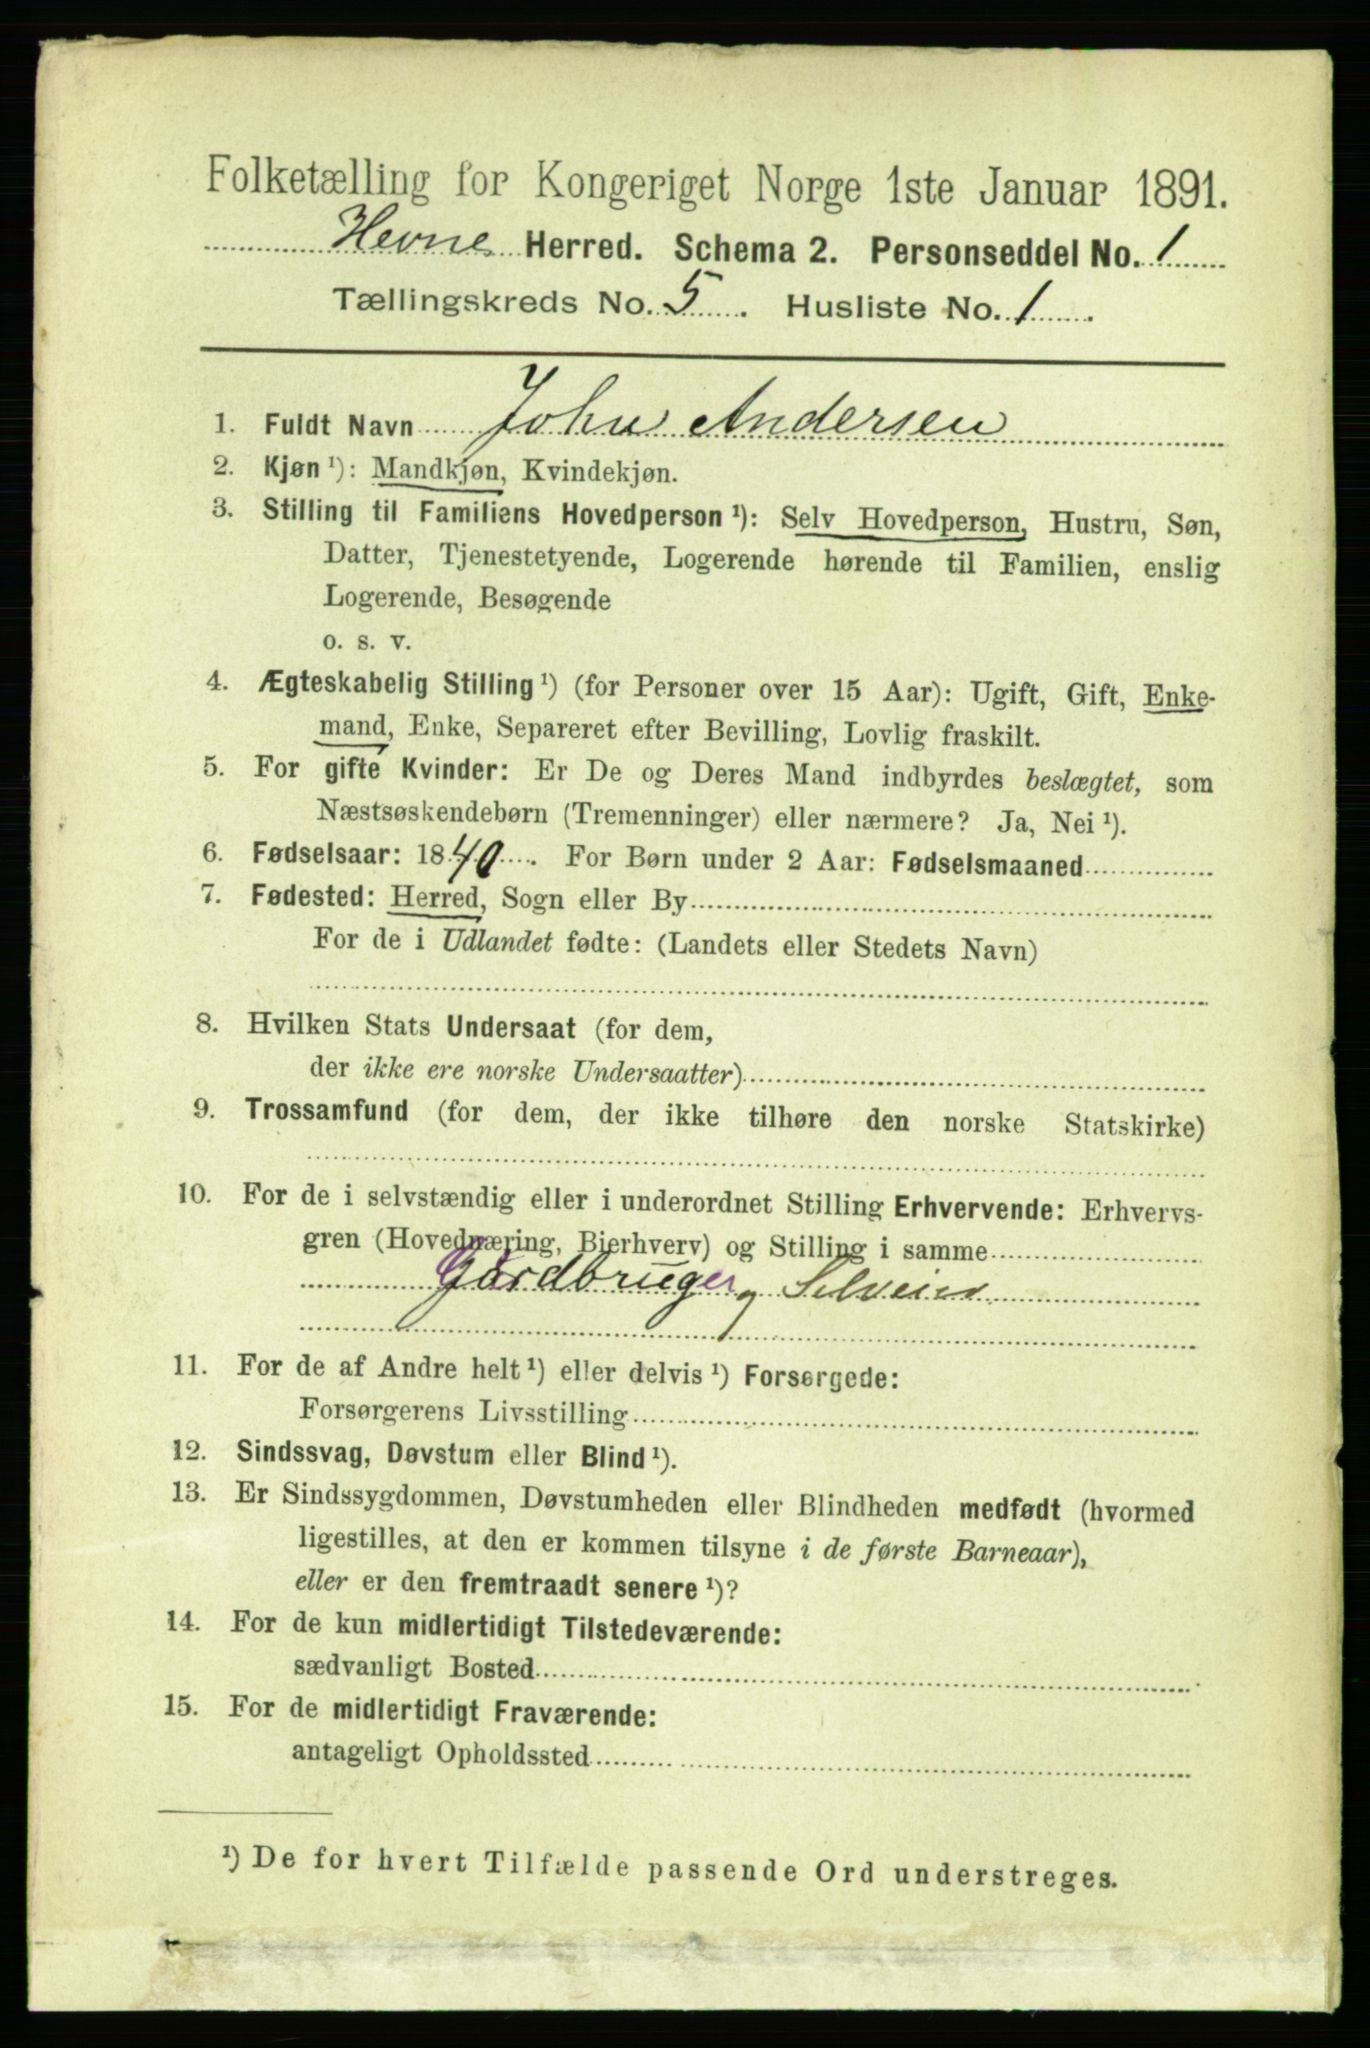 Folketælling for Kongeriget Norge 1ste Januar 1891.
Hevne Herred. Schema 2. Personseddel No. 1
Tællingskreds No. 5. Husliste No. 1.
1. Fuldt Navn John Andersen
2. Kjøn ¹): Mandkjøn, Kvindekjøn.
3. Stilling til Familiens Hovedperson ¹): Selv Hovedperson, Hustru, Søn,
Datter, Tjenestetyende, Logerende hørende til Familien, enslig
Logerende, Besøgende
o. s. v.
4. Ægteskabelig Stilling ¹) (for Personer over 15 Aar): Ugift, Gift, Enke-
mand, Enke, Separeret efter Bevilling, Lovlig fraskilt.
5. For gifte Kvinder: Er De og Deres Mand indbyrdes beslægtet, som
Næstsøskendebørn (Tremenninger) eller nærmere? Ja, Nei ¹).
6. Fødselsaar: 1840. For Børn under 2 Aar: Fødselsmaaned
7. Fødested: Herred, Sogn eller By
For de i Udlandet fødte: (Landets eller Stedets Navn)
8. Hvilken Stats Undersaat (for dem,
der ikke ere norske Undersaatter)
9. Trossamfund (for dem, der ikke tilhøre den norske Statskirke)
10. For de i selvstændig eller i underordnet Stilling Erhvervende: Erhvervs-
gren (Hovednæring, Bierhverv) og Stilling i samme
Gardbruger og Selveier
11. For de af Andre helt ¹) eller delvis ¹) Forsørgede:
Forsørgerens Livsstilling
12. Sindssvag, Døvstum eller Blind ¹).
13. Er Sindssygdommen, Døvstumheden eller Blindheden medfødt (hvormed
ligestilles, at den er kommen tilsyne i de første Barneaar),
eller er den fremtraadt senere ¹)?
14. For de kun midlertidigt Tilstedeværende:
sædvanligt Bosted
15. For de midlertidigt Fraværende:
antageligt Opholdssted
¹) De for hvert Tilfælde passende Ord understreges.